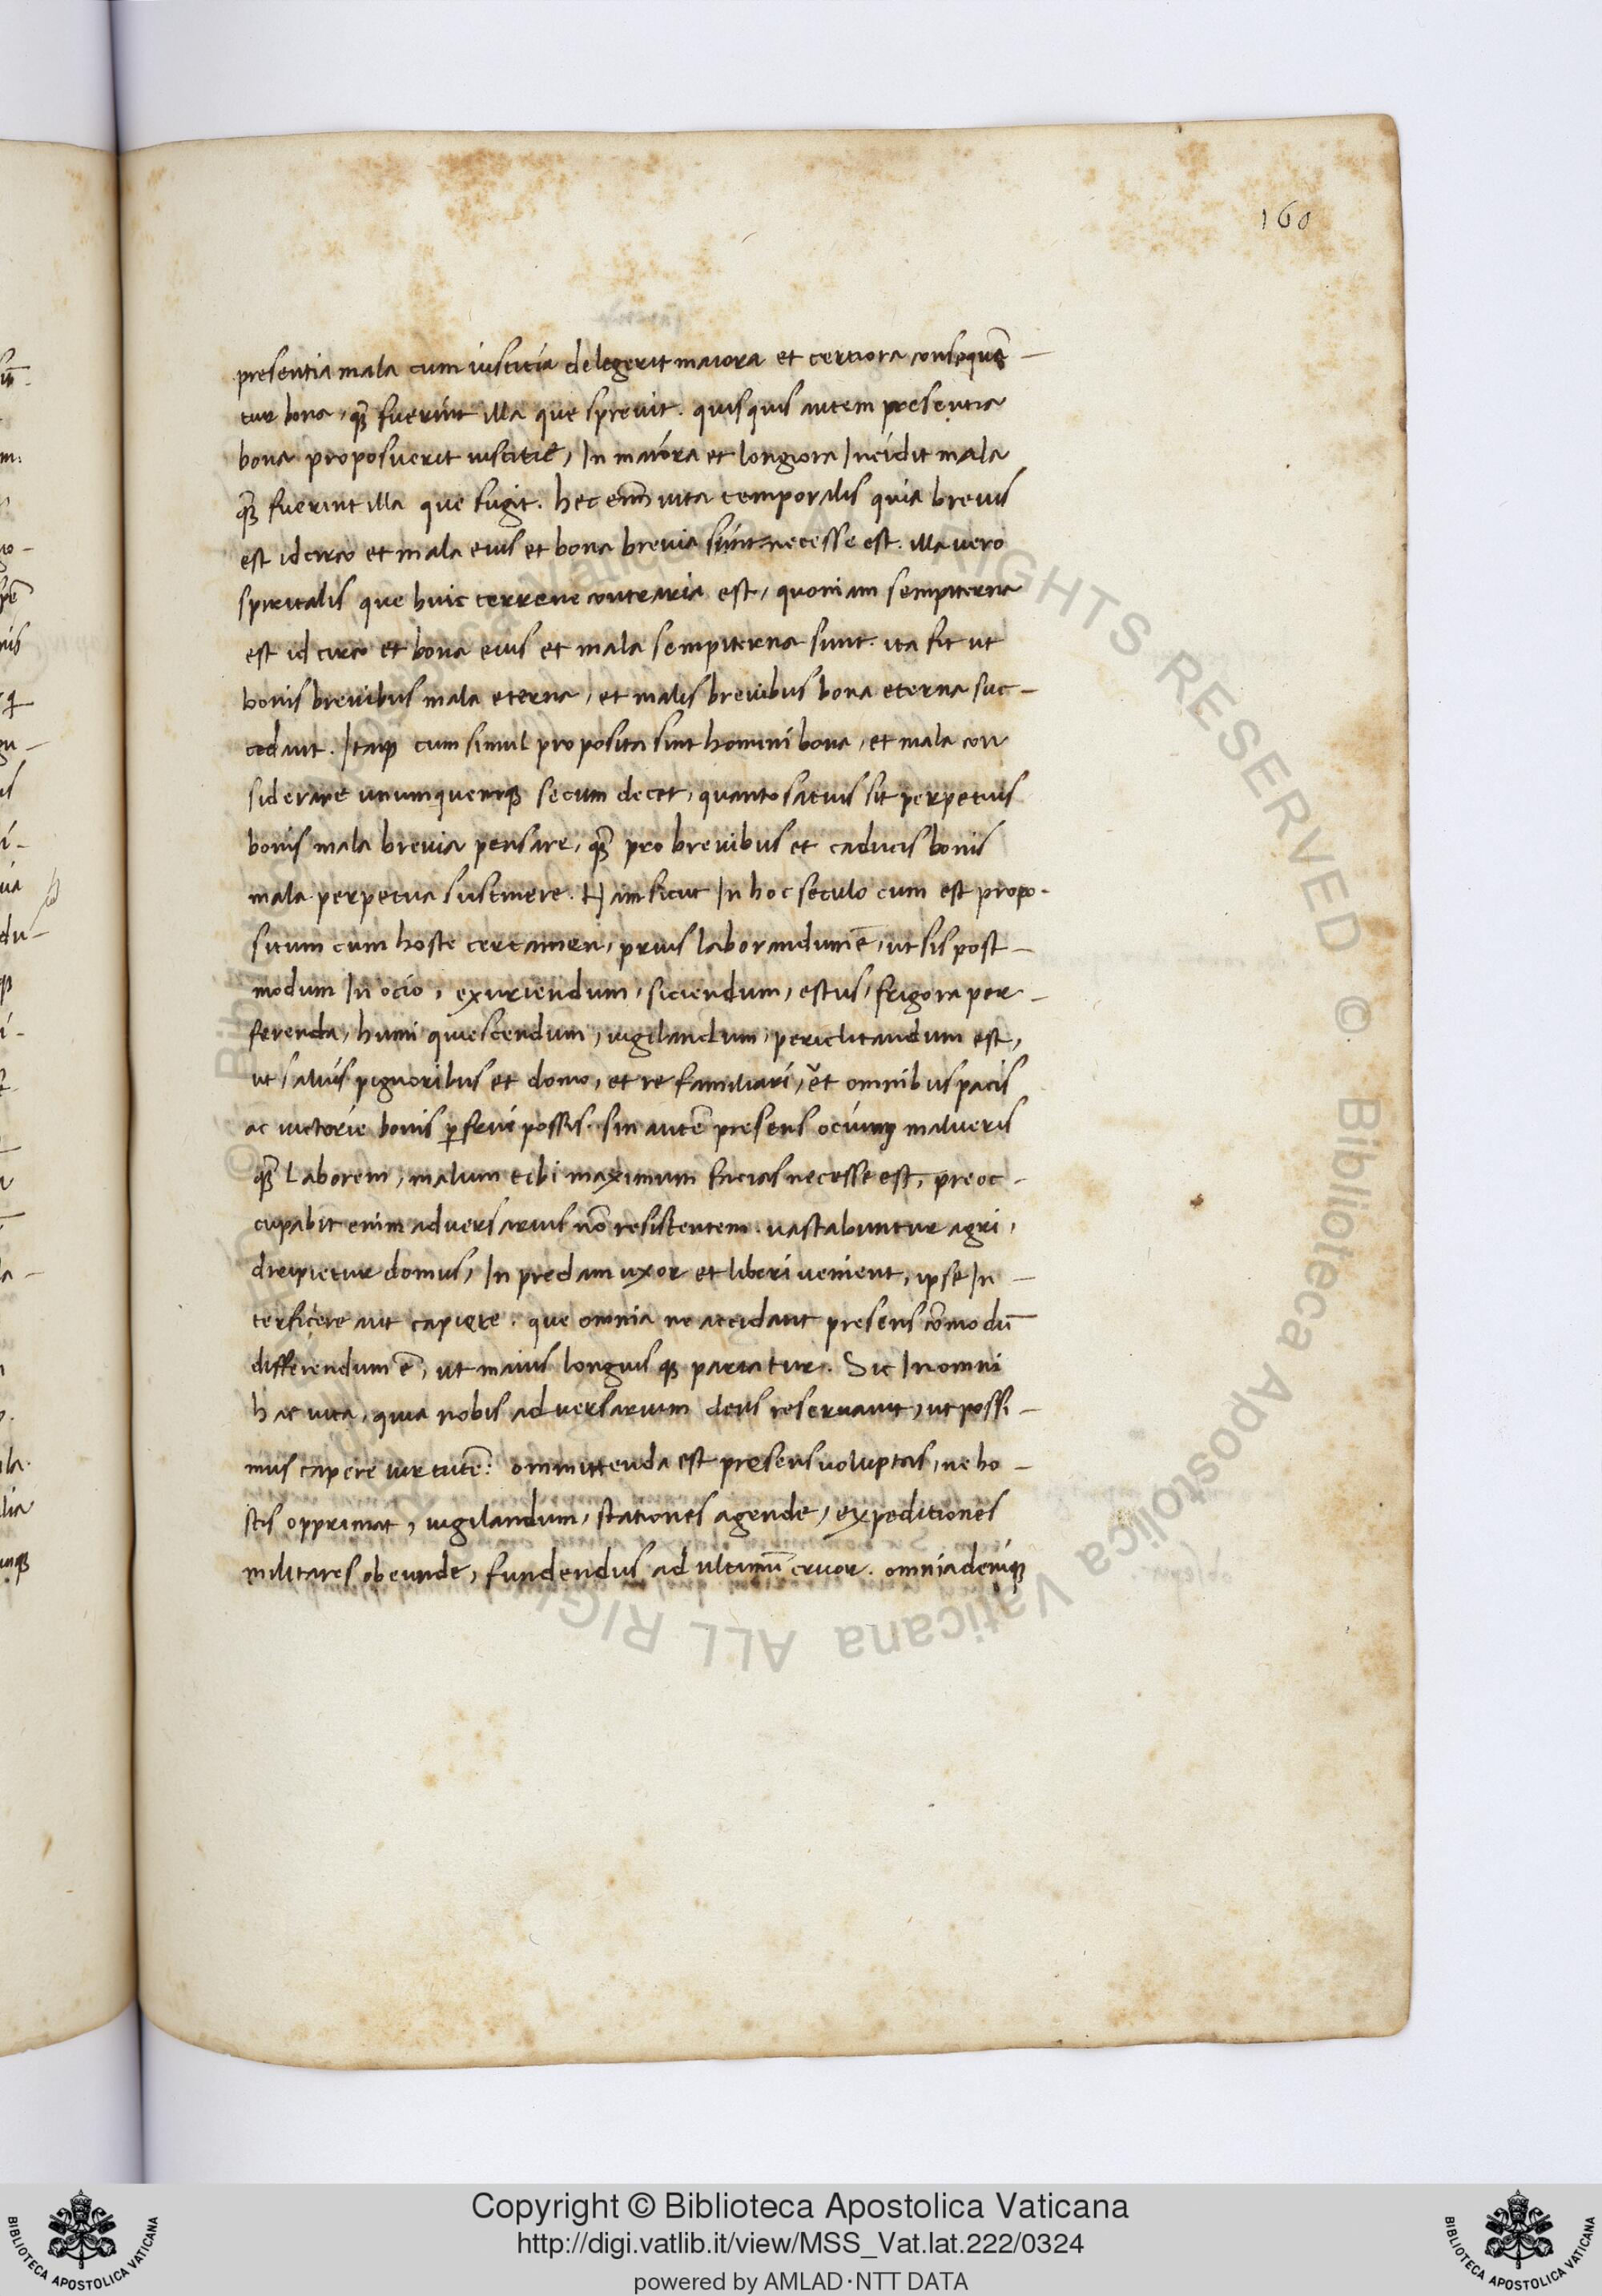 160
presentia mala cum iusticia delegerit maiora et certiora consequẽ-
tur bona, qȝ̃ fuerint illa que sprevit. quisquis autem presentia
bona proposuerit iusticie, In maiora et longiora Incidit mala
qȝ̃ fuerint illa que fugit. hec enĩ vita temporalis quia brevis
est idcirco et mala eius et bona brevia sunt necesse est. illa vero
spiritalis que huic terrene contraria est, quoniam sempiterna
est id circo et bona eius et mala sempiterna sunt. ita fit ut
bonis brevibus mala eterna, et malis brevibus bona eterna suc-
cedant. Itaqȝ cum simul proposita sint homini bona, et mala con
siderare unumquemqȝ secum decet, quanto satius sit perpetuis
bonis mala brevia pensare, qȝ̃ pro brevibus et caducis bonis
mala perpetua sustinere. Nam sicut In hoc seculo cum est propo-
situm cum hoste certamen, prius laborandum ẽ, ut sis post-
modum In ocio, exuriendum, siciendum, estus, frigora per-
ferenda, humi quiescendum, vigilandum, periclitandum est,
ut salvis pignoribus et domo, et re familiari, et omnibus pacis
ac victorie bonis ꝑfrui possis. sin autẽ presens ocium malueris
qȝ̃ Laborem, malum tibi maximum facias necesse est, preoc-
cupabit enim adversarius nõ resistentem. vastabuntur agri,
diripietur domus, In predam uxor et liberi venient, ipse In-
terficere aut capiere. que omnia ne accidant presens cõmodũ
differendum ẽ, ut maius longiusqȝ pariatur. Sic In omni
hac vita, quia nobis adversarium deus reservavit, ut possi-
mus capere virtutẽ: ommittenda est presens voluptas, ne ho-
stis opprimat, vigilandum, stationes agende, expeditiones
militares obeunde, fundendus ad ultimũ cruor. omnia deniqȝ
Copyright © Biblioteca Apostolica Vaticana
http://digi.vatlib.it/view/MSS_Vat.lat.222/0324
powered by AMLAD·NTT DATA
BIBLIOTECA APOSTOLICA VATICANA
BIBLIOTECA APOSTOLICA VATICANA